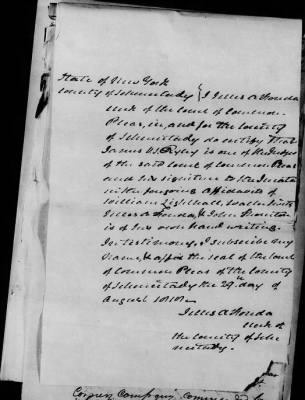 State of New York
County of Schenectady } I Jellis A Fonda
Clerk of the Court of Common
Pleas, in, and for the County
of Schenectady do certify that
James is one of the Judges
of the said Court of Common Pleas
and his signature to the Jurats
in the foregoing Affidavits of
William Lighthall, Walter
Jellis A Fonda, & John Thornton
is of his own hand writing.
In testimony, I subscribe my
name, & affix the seal of the Court
of Common Pleas of the County
of Schenectady the 29th day of
August
Jellis A Fonda
Clerk of
the County of Sche
nectady.